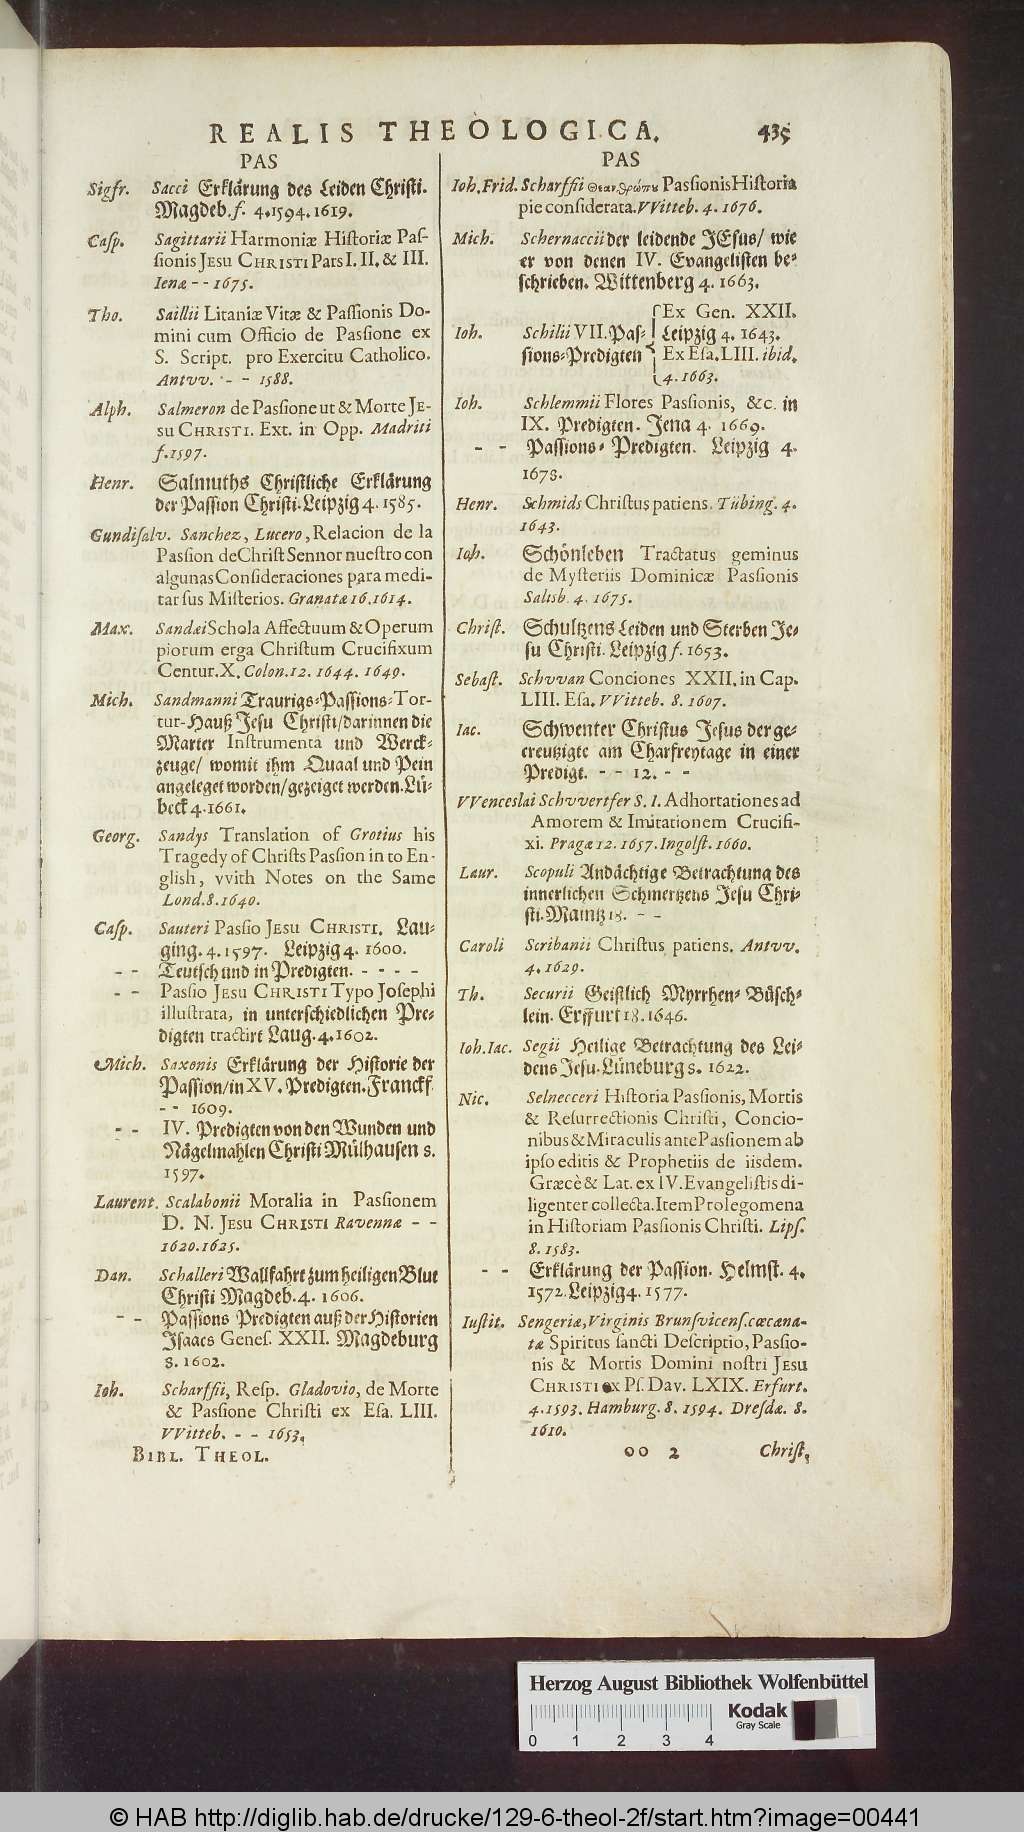 REALIS THEOLOGICA. 435
PAS
Sigfr. Sacci Erklärung des Leiden Christi.
Magdeb. f. 4.1594.1619.
Casp. Sagittarii Harmoniæ Historiæ Pas-
sionis JESU CHRISTI Pars I. II. & III.
Ienæ - - 1675.
Tho. Saillii Litaniæ Vitæ & Passionis Do-
mini cum Officio de Passione ex
S. Script. pro Exercitu Catholico.
Antvv. - - 1588.
Alph. Salmeron de Passione ut & Morte JE-
SU CHRISTI. Ext. in Opp. Madriti
f.1597.
Henr. Salmuths Christliche Erklärung
der Passion Christi. Leipzig 4. 1585.
Gundisalv. Sanchez, Lucero, Relacion de la
Passion de Christ Sennor nuestro con
algunas Consideraciones para medi-
tar sus Misterios. Granatæ 16.1614.
Max. Sandæi Schola Affectuum & Operum
piorum erga Christum Crucifixum
Centur. X. Colon. 12. 1644. 1649.
Mich. Sandmanni Traurigs-Passions-Tor-
tur-Hauß Jesu Christi/darinnen die
Marter Instrumenta und Werck-
zeuge/ womit ihm Quaal und Pein
angeleget worden/gezeiget werden. Lü-
beck 4.1661.
Georg. Sandys Translation of Grotius his
Tragedy of Christs Passion in to En-
glish, vvith Notes on the Same
Lond. 8. 1640.
Casp. Sauteri Passio JESU CHRISTI. Lau-
ging. 4. 1597. Leipzig 4. 1600.
- - Teutsch und in Predigten. - - - -
- - Passio JESU CHRISTI Typo Josephi
illustrata, in unterschiedlichen Pre-
digten tractirt Laug. 4.1602.
Mich. Saxonis Erklärung der Historie der
Passion/in XV. Predigten. Franckf.
- - 1609.
- - IV. Predigten von den Wunden und
Nägelmahlen Christi Mülhausen 8.
1597.
Laurent. Scalabonii Moralia in Passionem
D. N. JESU CHRISTI Ravennæ - -
1620.1625.
Dan. Schalleri Wallfahrt zum heiligen Blut
Christi Magdeb. 4. 1606.
- - Passions Predigten auß der Historien
Isaacs Genes. XXII. Magdeburg
8. 1602.
Ioh. Scharffii, Resp. Gladovio, de Morte
& Passione Christi ex Esa. LIII.
VVitteb. - - 1653.
BIBL. THEOL.
PAS
Ioh. Frid. Scharffii Θεανθρώπου Passionis Historia
pie considerata. VVitteb. 4. 1676.
Mich. Schernaccii der leidende JEsus/ wie
er von denen IV. Evangelisten be-
schrieben. Wittenberg 4. 1663.
Ex Gen. XXII.
Ioh. Schilii VII. Pas- Leipzig 4. 1643.
sions-Predigten Ex Esa. LIII. ibid.
4. 1663.
Ioh. Schlemmii Flores Passionis, &c. in
IX. Predigten. Jena 4. 1669.
- - Passions- Predigten. Leipzig 4.
1673.
Henr. Schmids Christus patiens. Tübing. 4.
1643.
Ioh. Schönleben Tractatus geminus
de Mysteriis Dominicæ Passionis
Salisb. 4. 1675.
Christ. Schultzens Leiden und Sterben Je-
su Christi. Leipzig f. 1653.
Sebast. Schvvan Conciones XXII. in Cap.
LIII. Esa. VVitteb. 8. 1607.
Iac. Schwenter Christus Jesus der ge-
creutzigte am Charfreytage in einer
Predigt. - - 12. - -
VVenceslai Schvvertfer S. I. Adhortationes ad
Amorem & Imitationem Crucifi-
xi. Pragæ 12. 1657. Ingolst. 1660.
Laur. Scopuli Andächtige Betrachtung des
innerlichen Schmertzens Jesu Chri-
sti. Maintz 18. - -
Caroli Scribanii Christus patiens. Antvv.
4. 1629.
Th. Securii Geistlich Myrrhen- Büsch-
lein. Erffurt 18. 1646.
Ioh. Iac. Segii Heilige Betrachtung des Lei-
dens Jesu. Lüneburg 8. 1622.
Nic. Selnecceri Historia Passionis, Mortis
& Resurrectionis Christi, Concio-
nibus & Miraculis ante Passionem ab
ipso editis & Prophetiis de iisdem.
Græcè & Lat. ex IV. Evangelistis di-
ligenter collecta. Item Prolegomena
in Historiam Passionis Christi. Lips.
8. 1583.
- - Erklärung der Passion. Helmst. 4.
1572. Leipzig 4. 1577.
Iustit. Sengeriæ, Virginis Brunsvicens. cæcana-
tæ Spiritus sancti Descriptio, Passio-
nis & Mortis Domini nostri JESU
CHRISTI ex Ps. Dav. LXIX. Erfurt.
4.1593. Hamburg. 8. 1594. Dresdæ. 8.
1610.
oo 2 Christ.
Herzog August Bibliothek Wolfenbüttel
Kodak
Gray Scale
0 1 2 3 4
© HAB http://diglib.hab.de/drucke/129-6-theol-2f/start.htm?image=00441